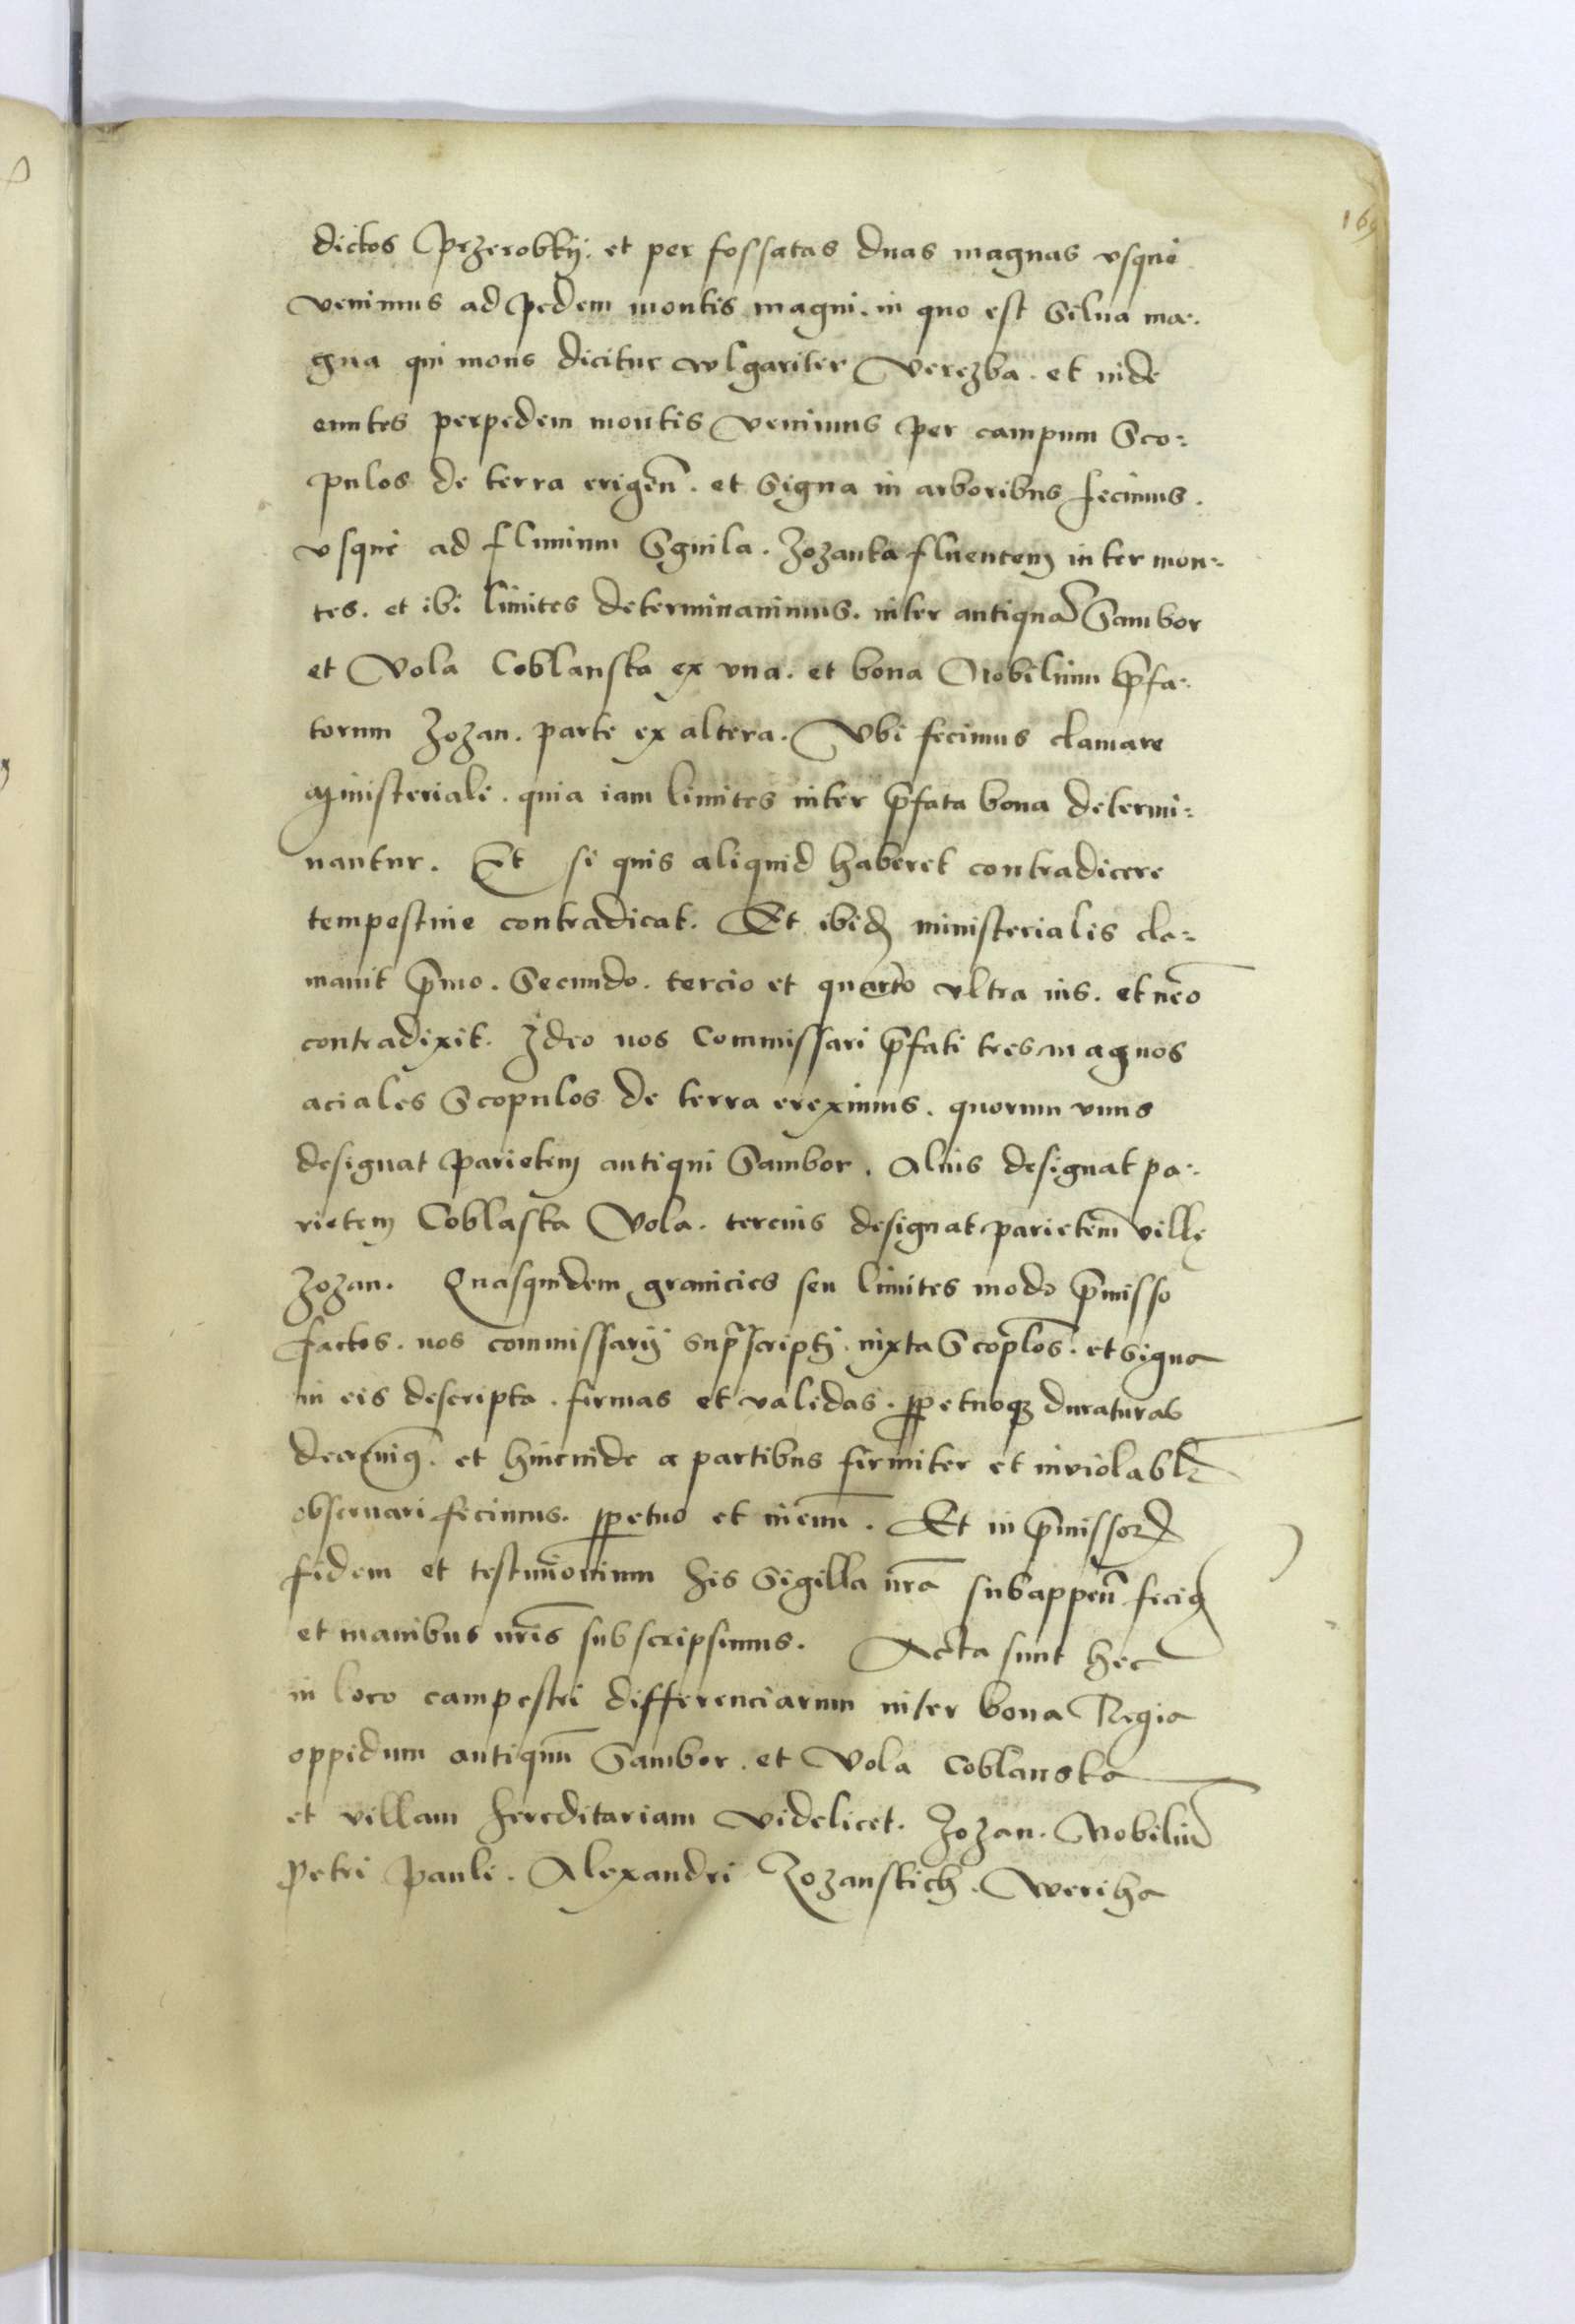 169
dictos Przerobky. et per fossatas duas magnas vsque
venimus ad pedem montis magni. in quo est Silua ma-
gna qui mons dicitur wlgariter Verezba. et inde
euntes perpedem montis venimus per campum Sco-
pulos de terra erigen̄. et Signa in arboribus fecimus.
vsque ad fluuium Sguila. Zozanka fluentem inter mon-
tes. et ibi limites determinauimus. inter antiquā Sambor
et Vola Coblanska ex vna. et bona Nobilium p̄fa-
torum Zozan. parte ex altera. Vbi fecimus clamare
ministeriali. quia iam limites inter p̄fata bona determi-
nantur. Et si quis aliquid haberet contradicere
tempestiue contradicat. Et ibidꝫ ministerialis cla-
mauit p̄mo. Secundo. tercio et quarto vltra ius. et nēo
contradixit. Ideo nos Commissari p̄fati tres magnos
aciales Scopulos de terra ereximus. quorum vnus
designat parietem antiqui Sambor. Alius designat pa-
rietem Coblaska Vola. tercius designat parietem villę
Zozan. Quasquidem granicies seu limites modo p̄misso
factos. nos commissarij sup̄scripti. iuxta Scoplos̄. et signa
in eis descripta. firmas et validas. ꝑpetuoqꝫ duraturas
decreuimꝰ. et hincinde a partibus firmiter et inviolabl̄r
obseruari fecimus. ꝑpetuo et ineuū. Et in p̄missorꝝ
fidem et testimonium his Sigilla nrā subappen̄ feciꝰ
et manibus nrīs subscripsimus. Acta sunt hec
in loco campestri differenciarum inter bona Regia
oppidum antiquū Sambor. et Vola Coblanska
et villam hereditariam videlicet. Zozan. Nobiliū
Petri Pauli. Alexandri Zozanskich. Weriha